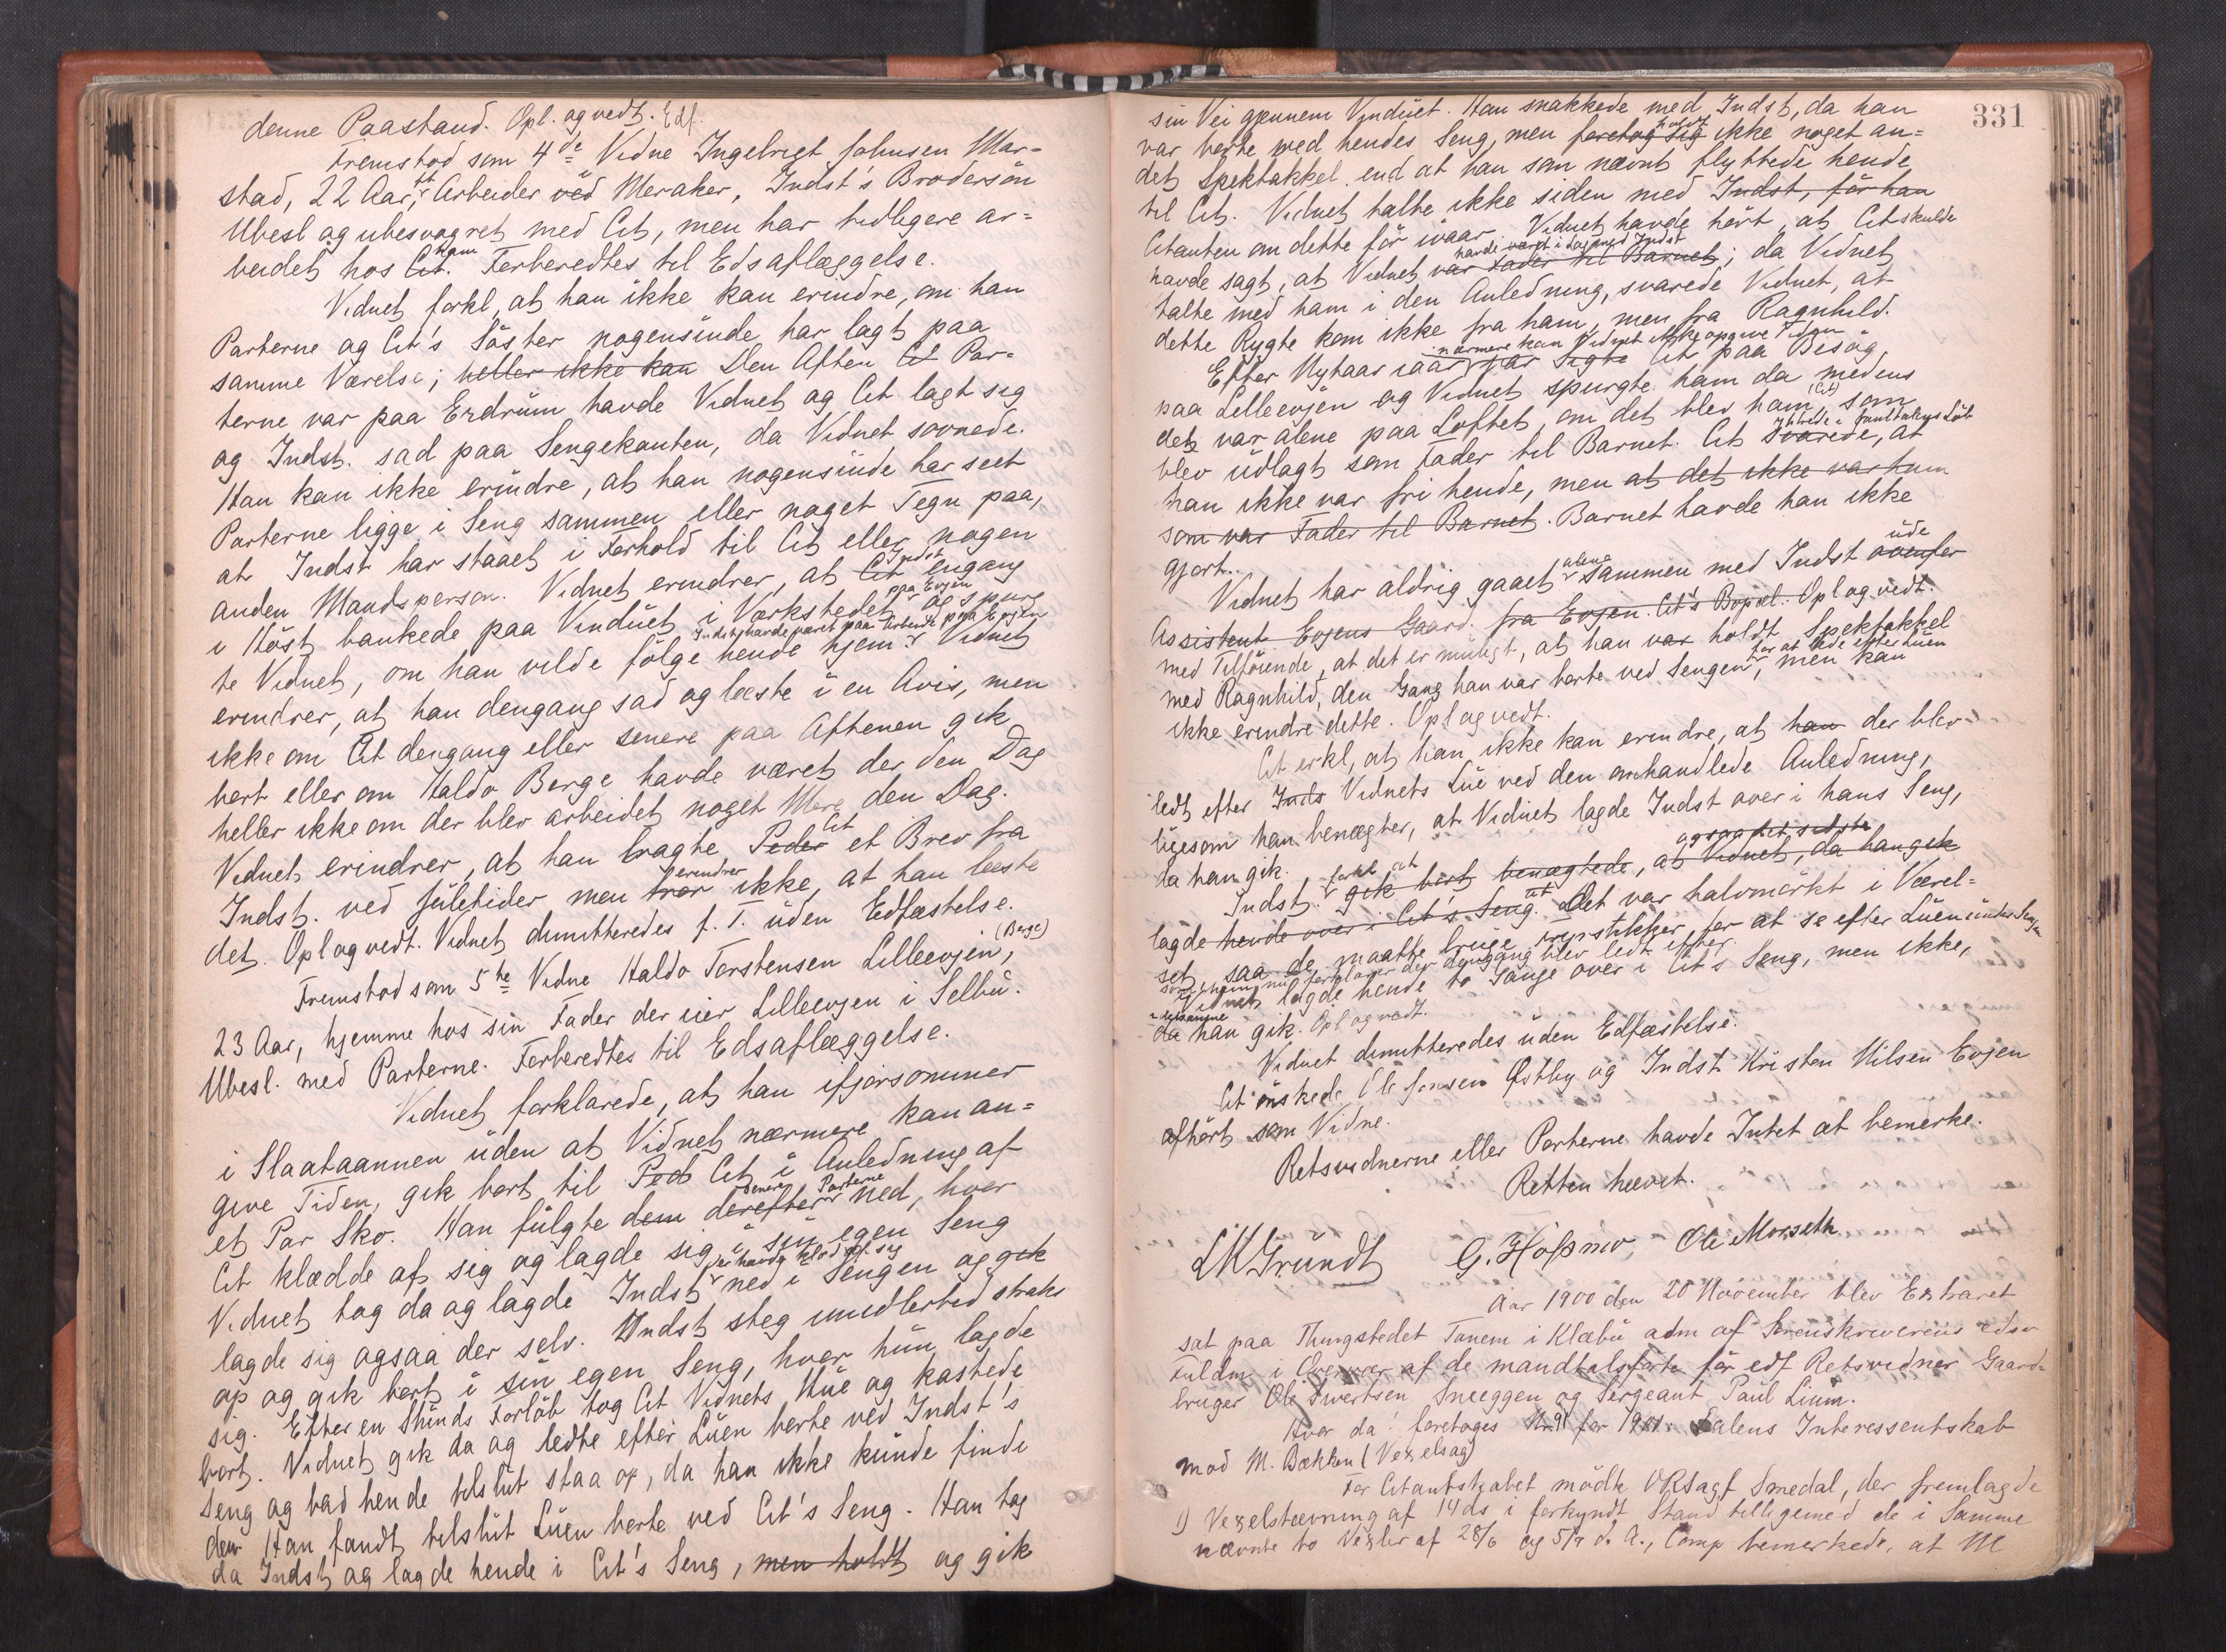 denne Paastand. Opl. og vedt. Edf.
Fremstod som 4de Vidne Ingebrigt Johnsen Mar-
stad, 22 Aar, Arbeider ved Meraker, Indst's Brodersön
Ubesl og ubesvogret med Cit, men har tidligere ar-
beidet hos Cit. ham Forberedtes til Edsaflæggelse.
Vidnet forkl, at han ikke kan erindre, om han
Parterne og Cit's Söster nogensinde har lagt paa
samme Værelse; heller ikke kan Den Aften Cit Par-
terne var paa Erdrum havde Vidnet og Cit lagt sig
og Indst. sad paa Sengekanten, da Vidnet sovnede.
Han kan ikke erindre, at han nogensinde har seet
Parterne ligge i Seng sammen eller noget Tegn paa,
at Indst har staaet i Forhold til Cit eller nogen
anden Mandsperson. Vidnet erindrer, at Cit Indst engang
i Höst bankede paa Vinduet i Værkstedet paa Evjen og spurg
te Vidnet, om han vilde fölge hende hjem. Indst havde været paa Arbeide paa Evjen Vidnet
erindrer, at han dengang sad og læste i en Avis, men
ikke om Cit dengang eller senere paa Aftenen gik
bort eller om Haldo Berge havde været der den Dag
heller ikke om der blev arbeidet noget Mere den Dag.
Vidnet erindrer, at han bragte Peder Cit et Brev fra
Indst. ved Juletider men tror erindrer ikke, at han læste
det. Opl og vedt. Vidnet dimitteredes p. T. uden Edfæstelse.
Fremstod som 5te Vidne Haldo Torstensen Lilleevjen, (Berge)
23 Aar, hjemme hos sin Fader der eier Lilleevjen i Selbu.
Ubesl. med Parterne. Forberedtes til Edsaflæggelse.
Vidnet forklarede, at han ifjorsommer
i Slaataannen uden at Vidnet nærmere kan an-
give Tiden, gik bort til Ped Cit i Anledning af
et Par Sko. Han fulgte dem derefter senere Parterne ned, hvor
Cit klædde af sig og lagde sig i sin egen Seng
Vidnet tog da og lagde Indst der havde klæd af sig ned i Sengen og gik
lagde sig ogsaa der selv. Indst steg imidlertid straks
op og gik bort i sin egen Seng, hvor hun lagde
sig. Efter en Stunds Forlöb tog Cit Vidnets Hue og kastede
bort. Vidnet gik da og ledte efter Luen borte ved Indst's
Seng og bad hende tilslut staa op, da han ikke kunde finde
den Han fandt tilslut Luen borte ved Cit's Seng. Han tog
da Indst og lagde hende i Cit's Seng, men holdt og gik
331
sin Vei gjennem Vinduet. Han snakkede med Indst, da han
var borte ved hendes Seng, men foretog sig holdt ikke noget an-
det Spektakkel end at han som nævnt flyttede hende
til Cit. Vidnet talte ikke siden med Indst, för han
Citanten om dette för ivaar. Vidnet havde hört, at Cit skulde
havde sagt, at Vidnet var Fader til Barnet havde været i Lag med Indst; da Vidnet
talte med ham i den Anledning, svarede Vidnet, at
dette Rygte kom ikke fra ham, men fra Ragnhild.
Efter Nytaar iaar nærmere kan Vidnet ikke opgive Tiden var Sigte Cit paa Besög
paa Lilleevjen og Vidnet spurgte ham da medens
det var alene paa Loftet, om det blev ham (Cit) som
blev udlagt som Fader til Barnet. Cit svarede, at
han ikke var fri hende, men at det ikke var ham
som var Fader til Barnet. Barnet havde han ikke
gjort.
Vidnet har aldrig gaaet alene sammen med Indst ude ovenfor
Assistent Evjens Gaard. fra Evjen. Cit's Bopæl. Opl og vedt.
med Tilföiende, at det er muligt, at han var holdt Spektakkel
med Ragnhild, den Gang han var borte ved Sengen for at lede efter Luen, men kan
ikke erindre dette. Opl og vedt.
Cit erkl, at han ikke kan erindre, at han der blev
ledt efter Inds Vidnets Lue ved den omhandlede Anledning,
ligesom han benægter, at Vidnet lagde Indst over i hans Seng,
da han gik.
Indst. forkl at gik bort benægtede, ogsaa det sidste at Vidnet, da han gik
lagde hende over i Cit's Seng. at Det var halvmörkt i Værel-
set, saa de maatte bruge Fyrstikker for at se efter Luen under Sengen
som hun nu forklarer der dengang blev ledt efter.
Vidnet lagde hende to Gange over i Cit's Seng, men ikke,
da han gik. Opl og vedt.
Vidnet dimitteredes uden Edfæstelse.
Cit önskede Ole Jonsen Østby og Indst Kristen Nilsen Evjen
afhört som Vidne.
Retsvidnerne eller Parterne havde Intet at bemærke.
Retten hævet.
LKGrundt G. Hofsmo Ole Morseth
Aar 1900 den 20 November blev Extraret
sat paa Thingstedet Tanem i Klæbu adm af Sorenskriverens edsv
Fuldm i Overvær af de mandtalsførte før edf Retsvidner Gaard-
bruger Ole Sivertsen Sneeggen og Sergeant Paul Lium.
Hvor da foretoges Nr 91 for 1900: Dalens Interessentskab
mod M. Bækken (Vexelsag)
For Citantskabet mödte ORSagf Smedal, der fremlagde
1) Vexelstævning af 14 ds i forkyndt Stand tilligemed de i Samme
nævnte to Vexler af 28/6 og 5/7 d. A., Comp bemerkede, at M